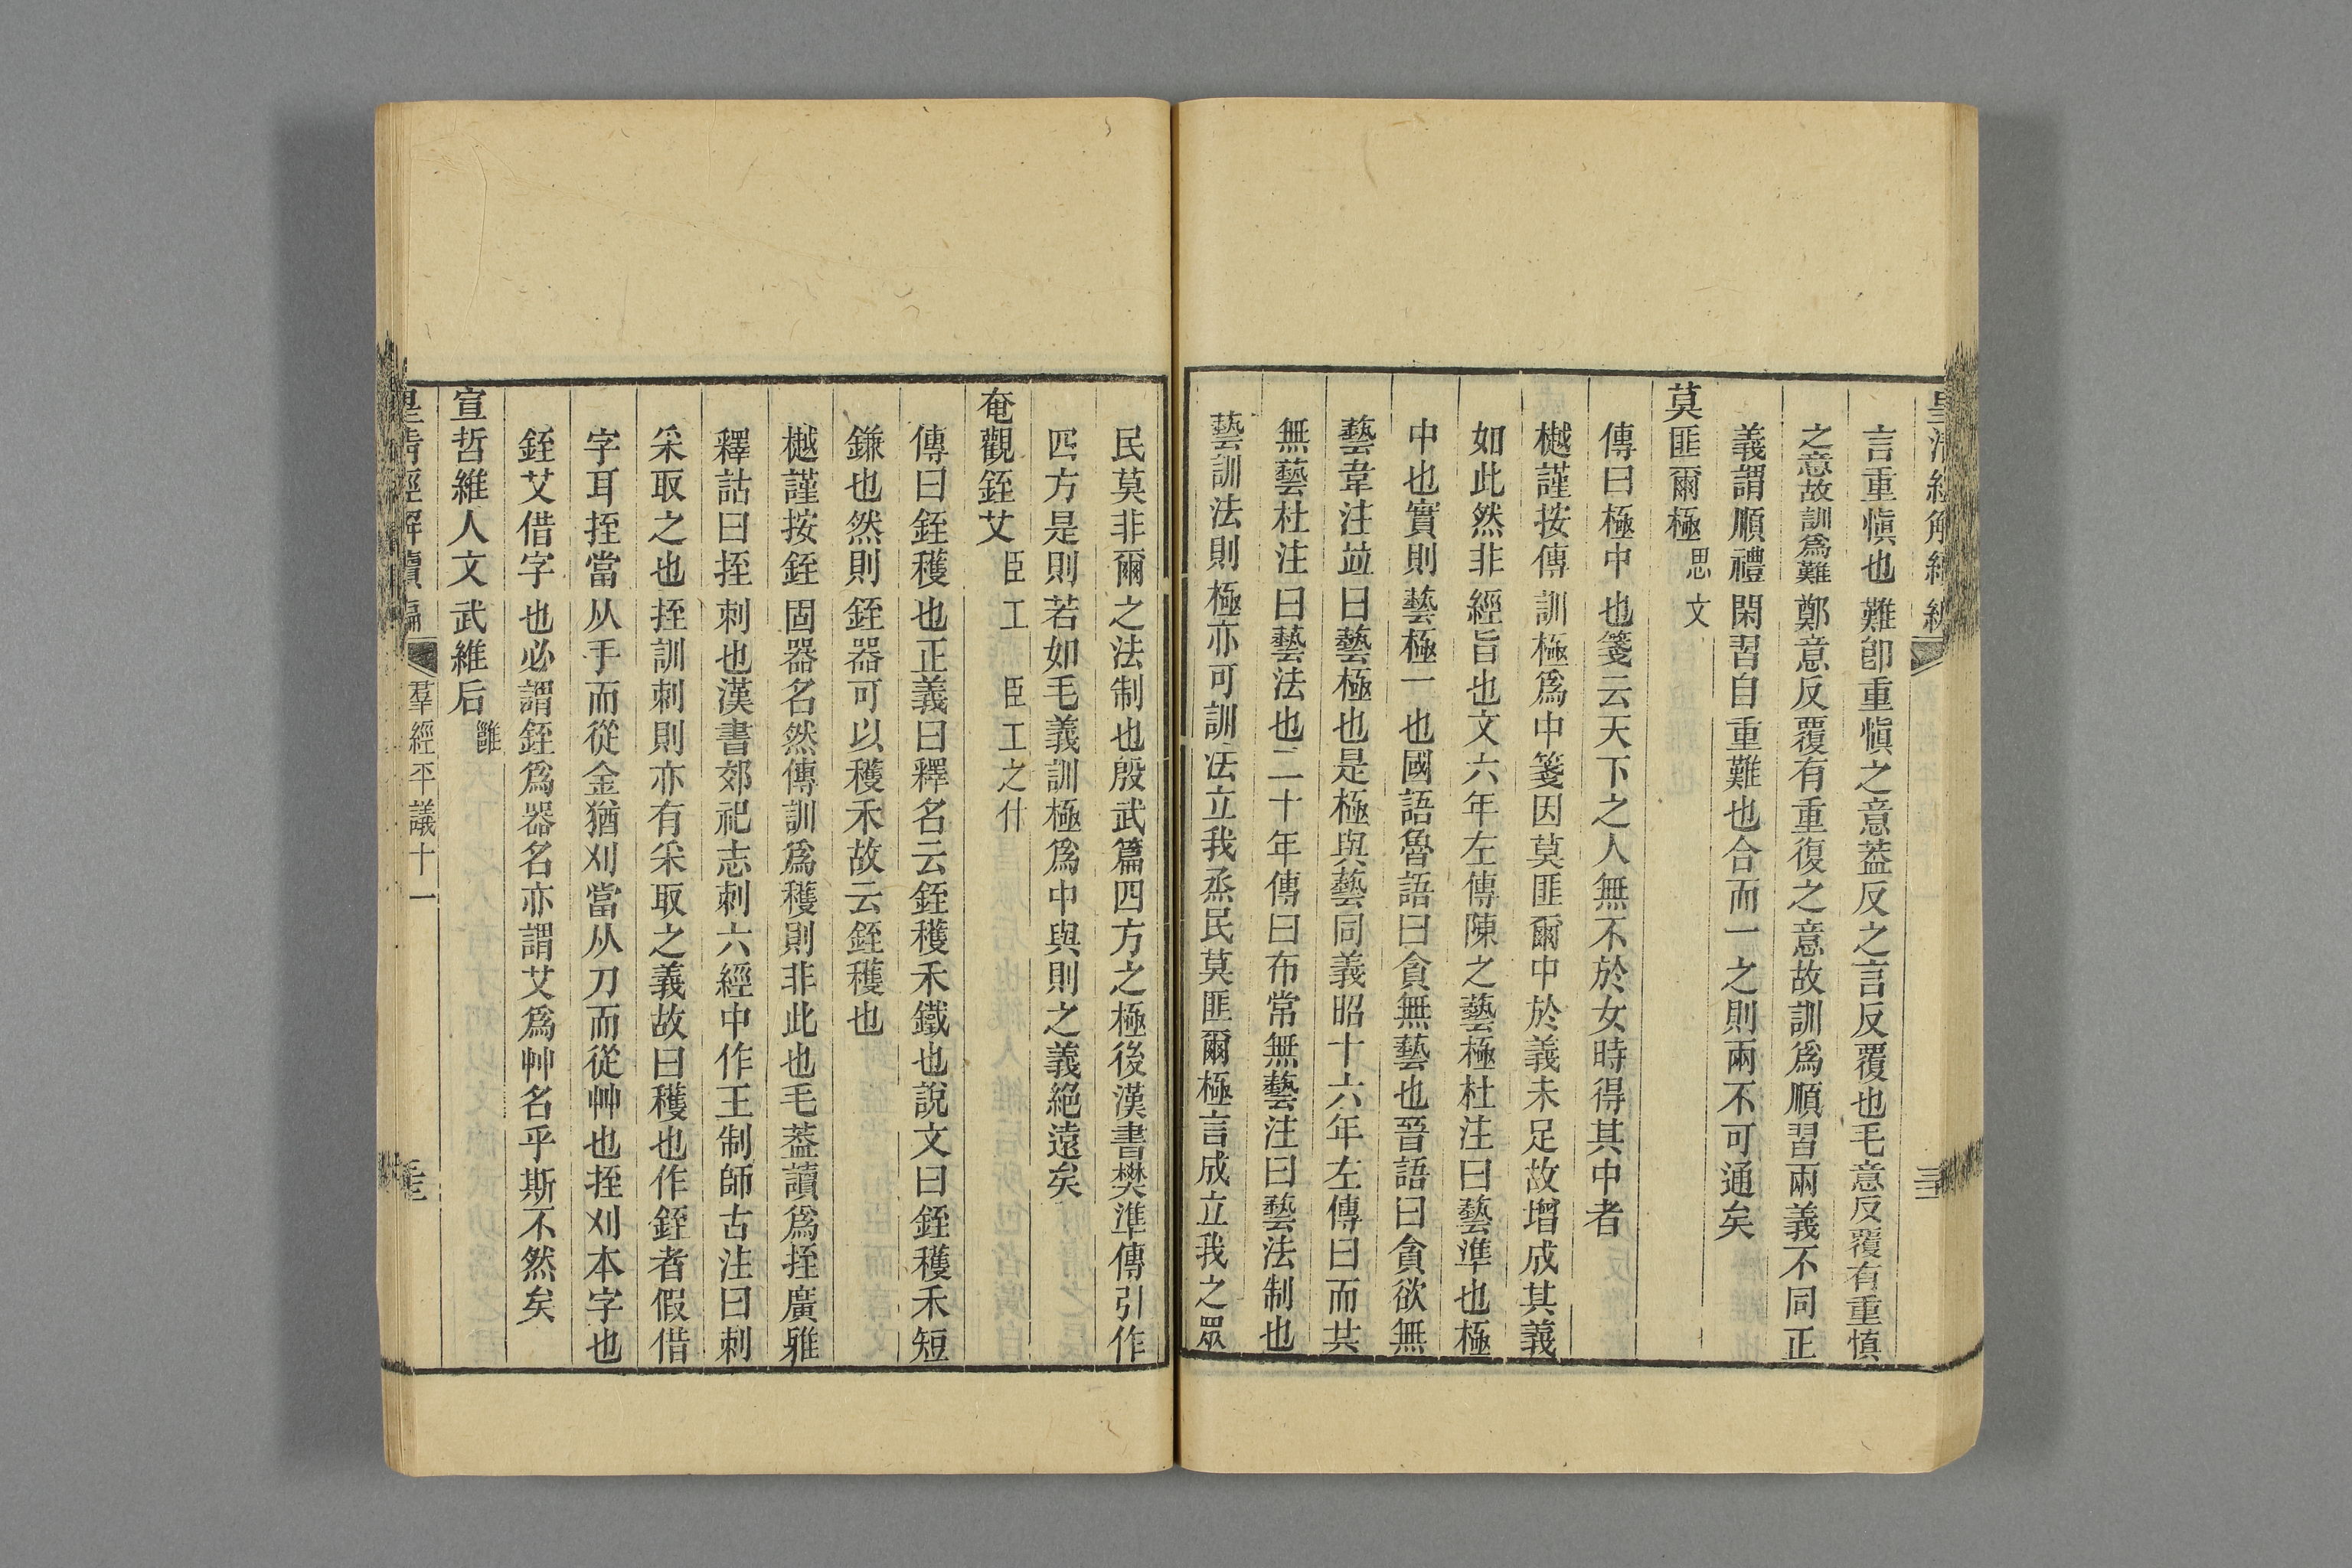 言重愼也難卽重愼之意葢反之言反覆也毛意反覆有重慎
之意故訓爲難鄭意反覆有重復之意故訓爲順習兩義不同正
義謂順禮閑習自重難也合而一之則兩不可通矣
莫匪爾極思文
傳曰極中也箋云天下之人無不於女時得其中者
樾謹按傳訓極爲中箋因莫匪爾中於義未足故增成其義
如此然非經旨也文六年左傳陳之藝極杜注曰藝準也極
中也實則藝極一也國語魯語曰貪無藝也晉語曰貪欲無
藝韋注竝曰藝極也是極與藝同義昭十六年左傳曰而共
無藝杜注曰藝法也二十年傳曰布常無藝注曰藝法制也
藝訓法則極亦可訓法立我烝民莫匪爾極言成立我之眾
民莫非爾之法制也殷武篇四方之極後漢書樊準傳引作
四方是則若如毛義訓極爲中與則之義絕遠矣
奄觀銍艾臣工 臣工之什
傳曰銍穫也正義曰釋名云銍穫禾鐵也說文曰銍穫禾短
鎌也然則銍器可以穫禾故云銍穫也
樾謹按銍固器名然傳訓爲穫則非此也毛葢讀爲挃廣雅
釋詁曰挃刺也漢書郊祀志刺六經中作王制師古注曰刺
采取之也挃訓刺則亦有采取之義故曰穫也作銍者假借
字耳挃當从手而從金猶刈當从刀而從艸也挃刈本字也
銍艾借字也必謂銍爲器名亦謂艾爲艸名乎斯不然矣
宣哲維人文武維后雝
皇清經解續編 羣經平議十一